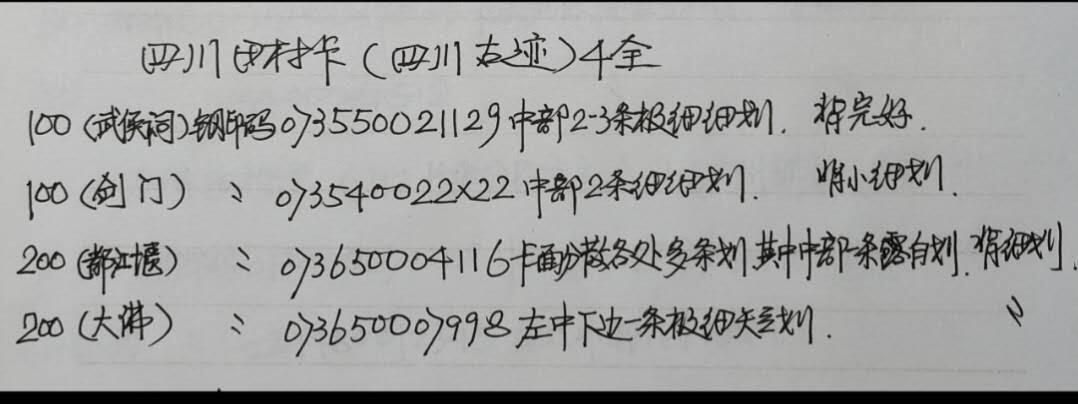 四川田村卡（四川古迹）4全
100（武侯祠）钢印码073550021129中部2-3条极细细划．背完好．
100（剑门）〃 073540022X22中部2条细细划．背小细划．
200（都江堰）〃 073650004116卡面分散各处多条划,其中中部一条露白划．背细划．
200（大佛）〃 073650007998左中下边一条极细短划．〃